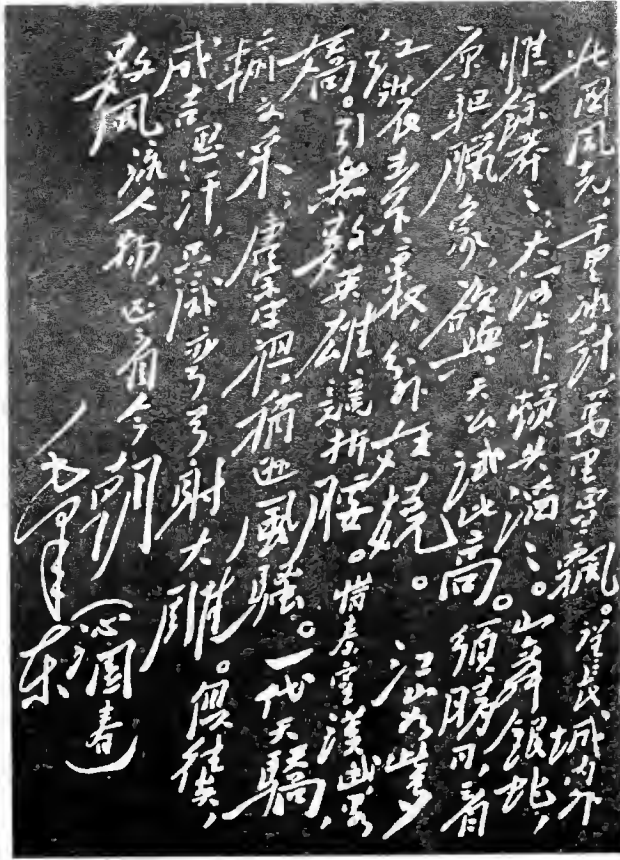 北國風光,千里冰封,萬里雪飄。望長城內外
惟餘莽々、大河上下頓失滔々。山舞銀蛇,
原驅臘象,欲與天公試比高。須晴日,看
紅裝素裹,分外妖嬈。江山如此多
嬌。引無數英雄競折腰。惜秦皇漢武略
輸文采;唐宗宋祖,稍遜風騷。一代天驕,
成吉思汗,只識彎弓射大雕。俱往矣,
數風流人物,還看今朝(沁園春)
毛澤東